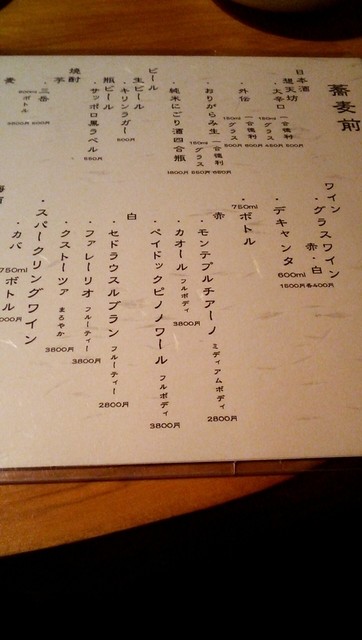 蕎麦前
日本酒
想天坊
・大辛口
一合徳利
150ml グラス
・外伝
一合徳利
150ml グラス
・おりがらみ生
一合徳利
150ml グラス
・純米にごり酒四合瓶
1800円
ビール
生ビール
・キリンラガー
500円
瓶ビール
・サッポロ風ラベル
550円
焼酎
芋
・三岳
ボトル
麦
ワイン
・グラスワイン
赤・白
各400円
・デキャンタ
600ml
1500円
・ボトル
750ml
赤
・モンテプルチアーノ ミディアムボディ
2800円
・カオール フルボディ
3800円
・ペイドックピノノワール フルボディ
3800円
白
・セドラウスルブラン フルーティー
2800円
・ファレーリオ フルーティー
3800円
・クストーツァ まろやか
3800円
・スパークリングワイン
・カバ
750ml ボトル